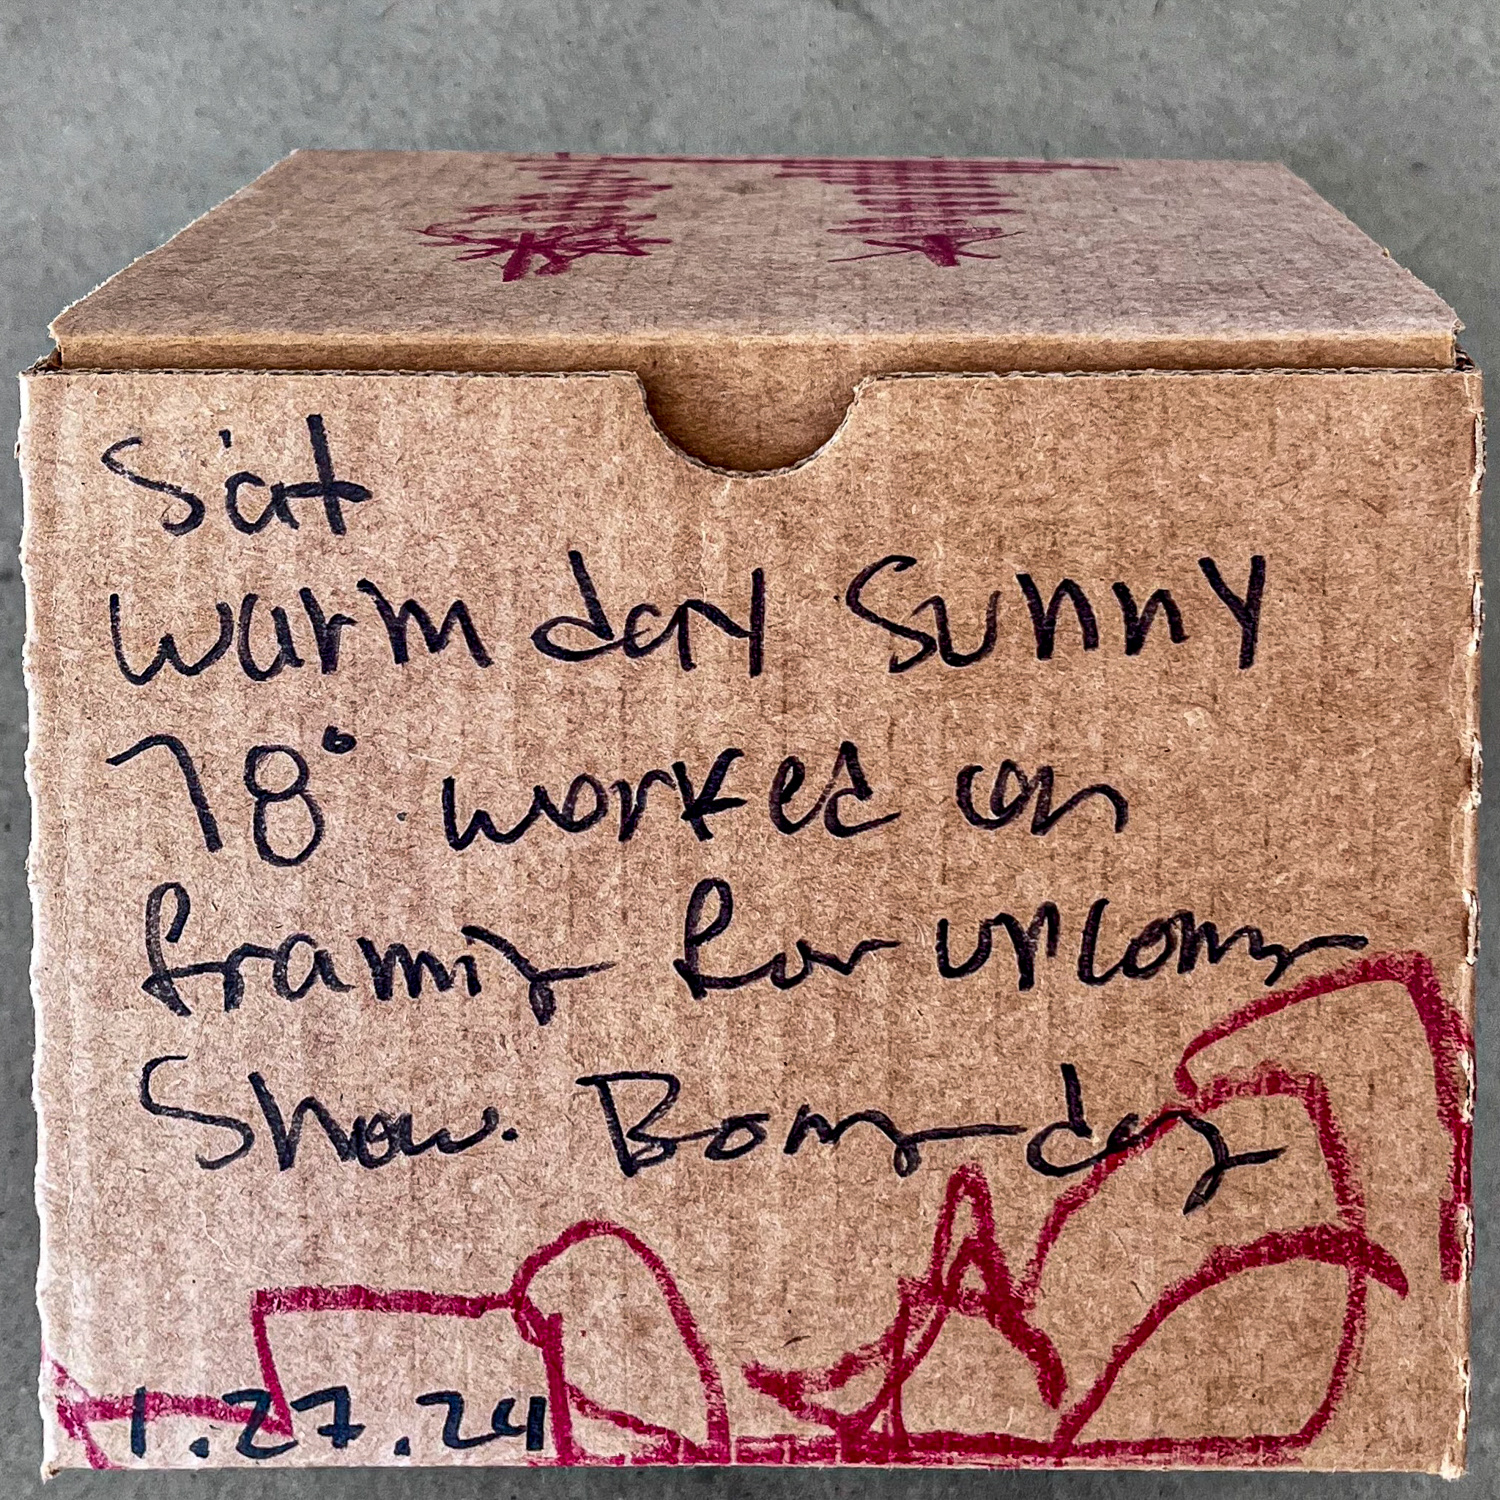 Sat
warm day Sunny
78° worked on
framing for upcoming
Show. Boring day
1.27.24